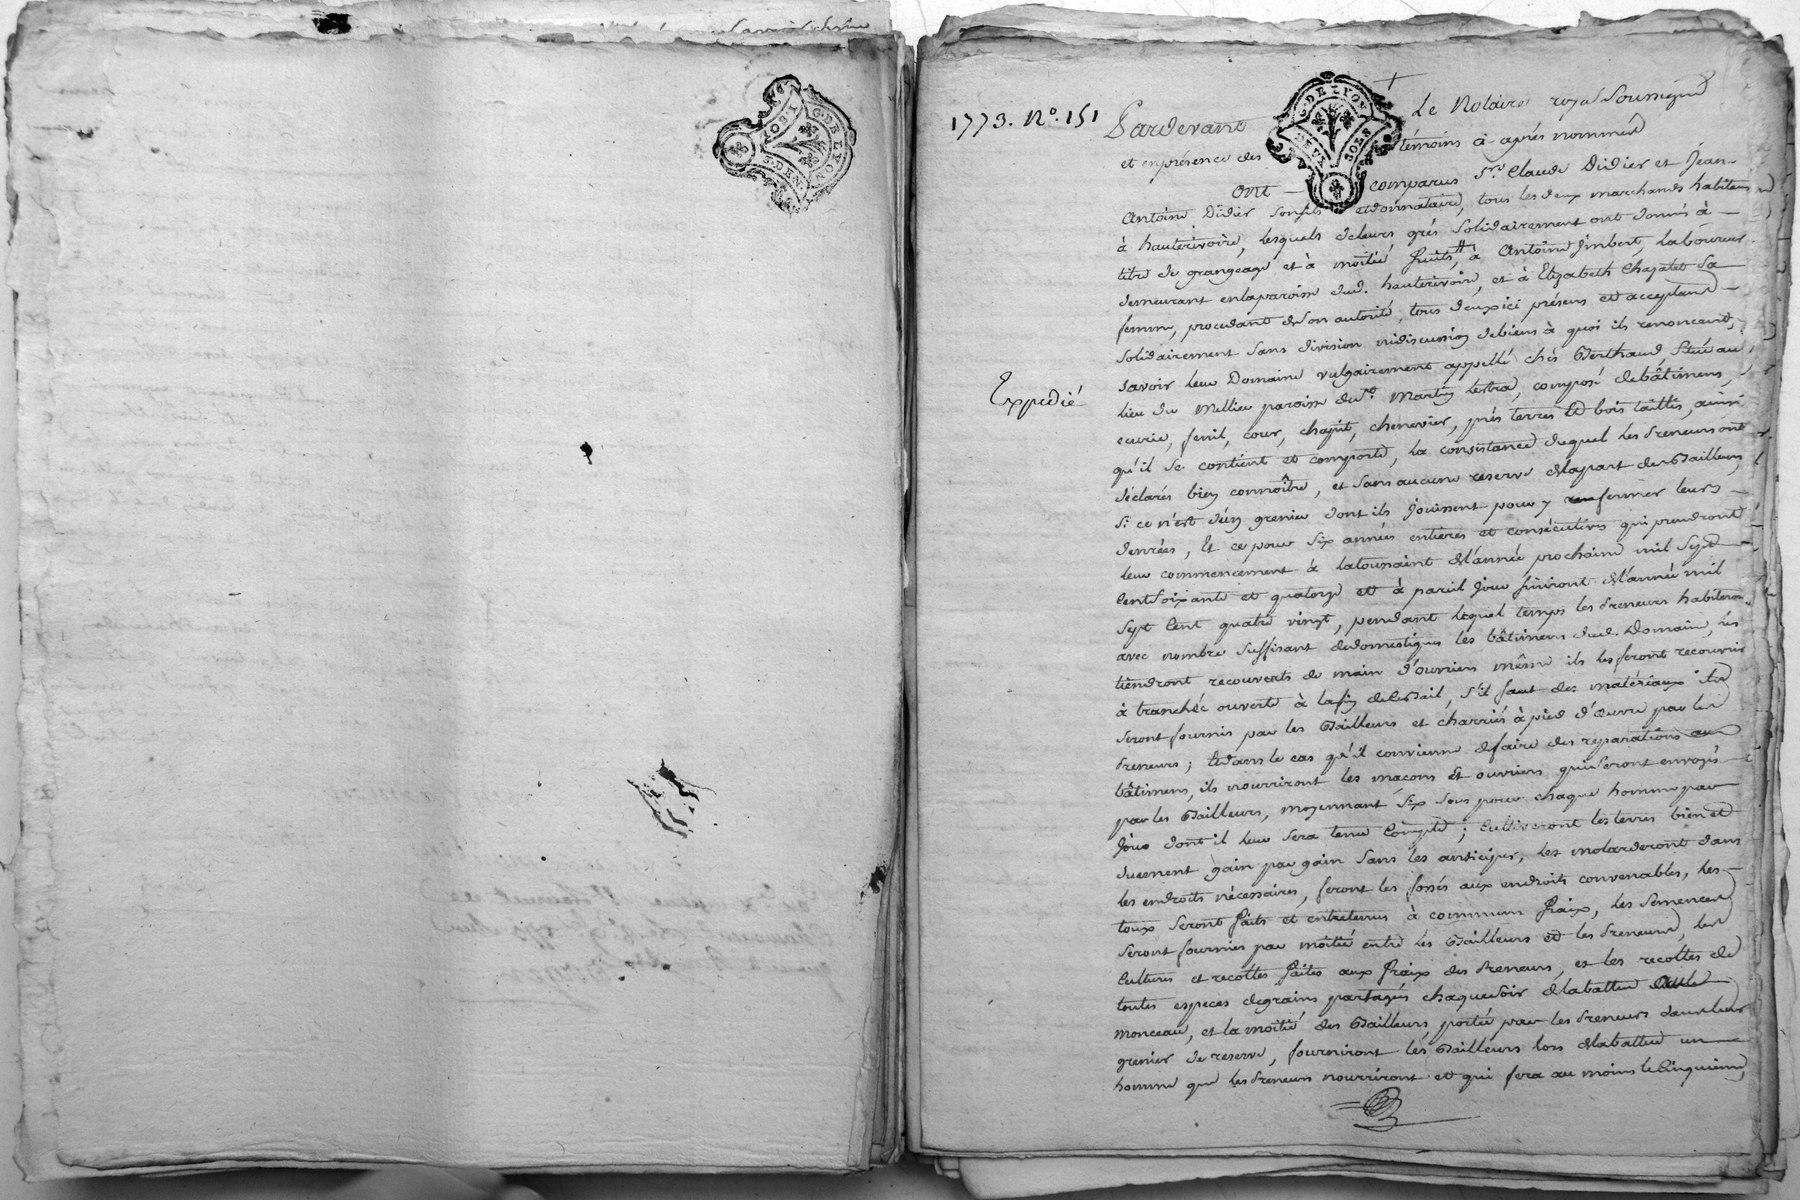 1773. No. 151
Pardevant Le Notaire royal Soussigné
et en présence des témoins ci après nommés
ont comparus Srs Claude Didier et Jean
Antoine Didier son fils et donnataire, tous les deux marchands habitans
à hauterivoire, lesquels de leurs grés solidairement ont donnés à
titre de grangeage et à moitié fruits, à Antoine Jimbert, Laboureur
demeurant en la paroisse dud. hauterivoire, et à Elizabeth Chapelet sa
femme, procedant de son autorité, tous deux ici présens et acceptans
solidairement sans division ni discussion de biens à quoi ils renoncent,
savoir leur Domaine vulgairement appellé chés Berthaud, Situé au
lieu du Millieu paroisse de St. Martin Lestra, composé de bâtimens,
Expedié
ecurie, fenil, cour, chapit, chenevier, prés terres et bois taillis, ainsi
qu'il se contient et comporte, la consistance duquel les Preneurs ont
déclarés bien connoître, et sans aucune reserve de la part des Bailleurs,
si ce n'est d'un grenier dont ils jouissent pour y renfermer leurs
denrées, Et ce pour six années entieres et consécutives qui prendront
leur commencement à la toussaint de l'année prochaine mil Sept
Cent Soixante et quatorze et à pareil jour finiront de l'année mil
Sept Cent quatre vingt, pendant lequel temps les Preneurs habiteront
avec nombre suffisant de domestiques les bâtimens dud. Domaine, les
tiendront recouverts de main d'ouvriers même ils les feront recouvrir
à tranchée ouverte à la fin de ce Bail, s'il faut des matériaux ils
seront fournis par les Bailleurs et charriés à pied d'œuvre par les
Preneurs; Et dans le cas qu'il convienne de faire des reparations aux
bâtimens, ils nourriront les maçons et ouvriers qui seront envoyés
par les Bailleurs, moyennant six sous pour chaque homme par
jour dont il leur sera tenu Compte; Cultiveront les terres bien et
duement gain par gain sans les anticiper, les molarderont dans
les endroits nécessaires, feront les fossés aux endroits convenables, les
toux seront faits et entretenus à commun fraix, les semences
seront fournies par moitié entre les Bailleurs et les Preneurs, les
Cultures et recoltes faites aux fraix des Preneurs, et les recoltes de
toutes especes de grains partagés chaque soir de la battue
monceau, et la moitié des Bailleurs, portée par les Preneurs dans leur
grenier de reserve, fourniront les Bailleurs lors de la battue un
homme que les Preneurs nourriront et qui fera au moins le Cinquieme